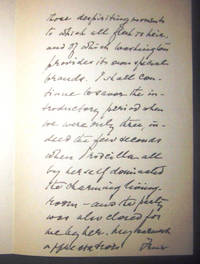 those despiriting moments
to which all flesh is heir
and of which Washington
provides its own special
brands. I shall con-
tinue to savor the in-
troductory period when
we were only three, in-
deed the few seconds
when Priscilla all
by herself dominated
the charming living-
room – and the party
was also closed for
me by her. My warmest
appreciation